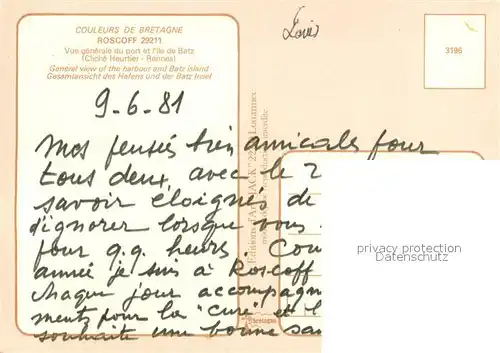 COULEURS DE BRETAGNE
ROSCOFF 29211
Vue générale du port et l'île de Batz
(Cliché Heurtier - Rennes)
General view of the harbour and Batz island
Gesamtansicht des Hafens und der Batz Insel
Louis
3196
9-6-81
Mos pensées bien amicales pour
tous deux, avec le
savoir eloignés de
d'ignorer lorsque vous
pour q.q. heures.
année je suis à Roscoff
chaque jour
ments pour la "cure" et
souhaite une bonne
Editions d'Art "JACK"
Louannec
privacy protection
Datenschutz